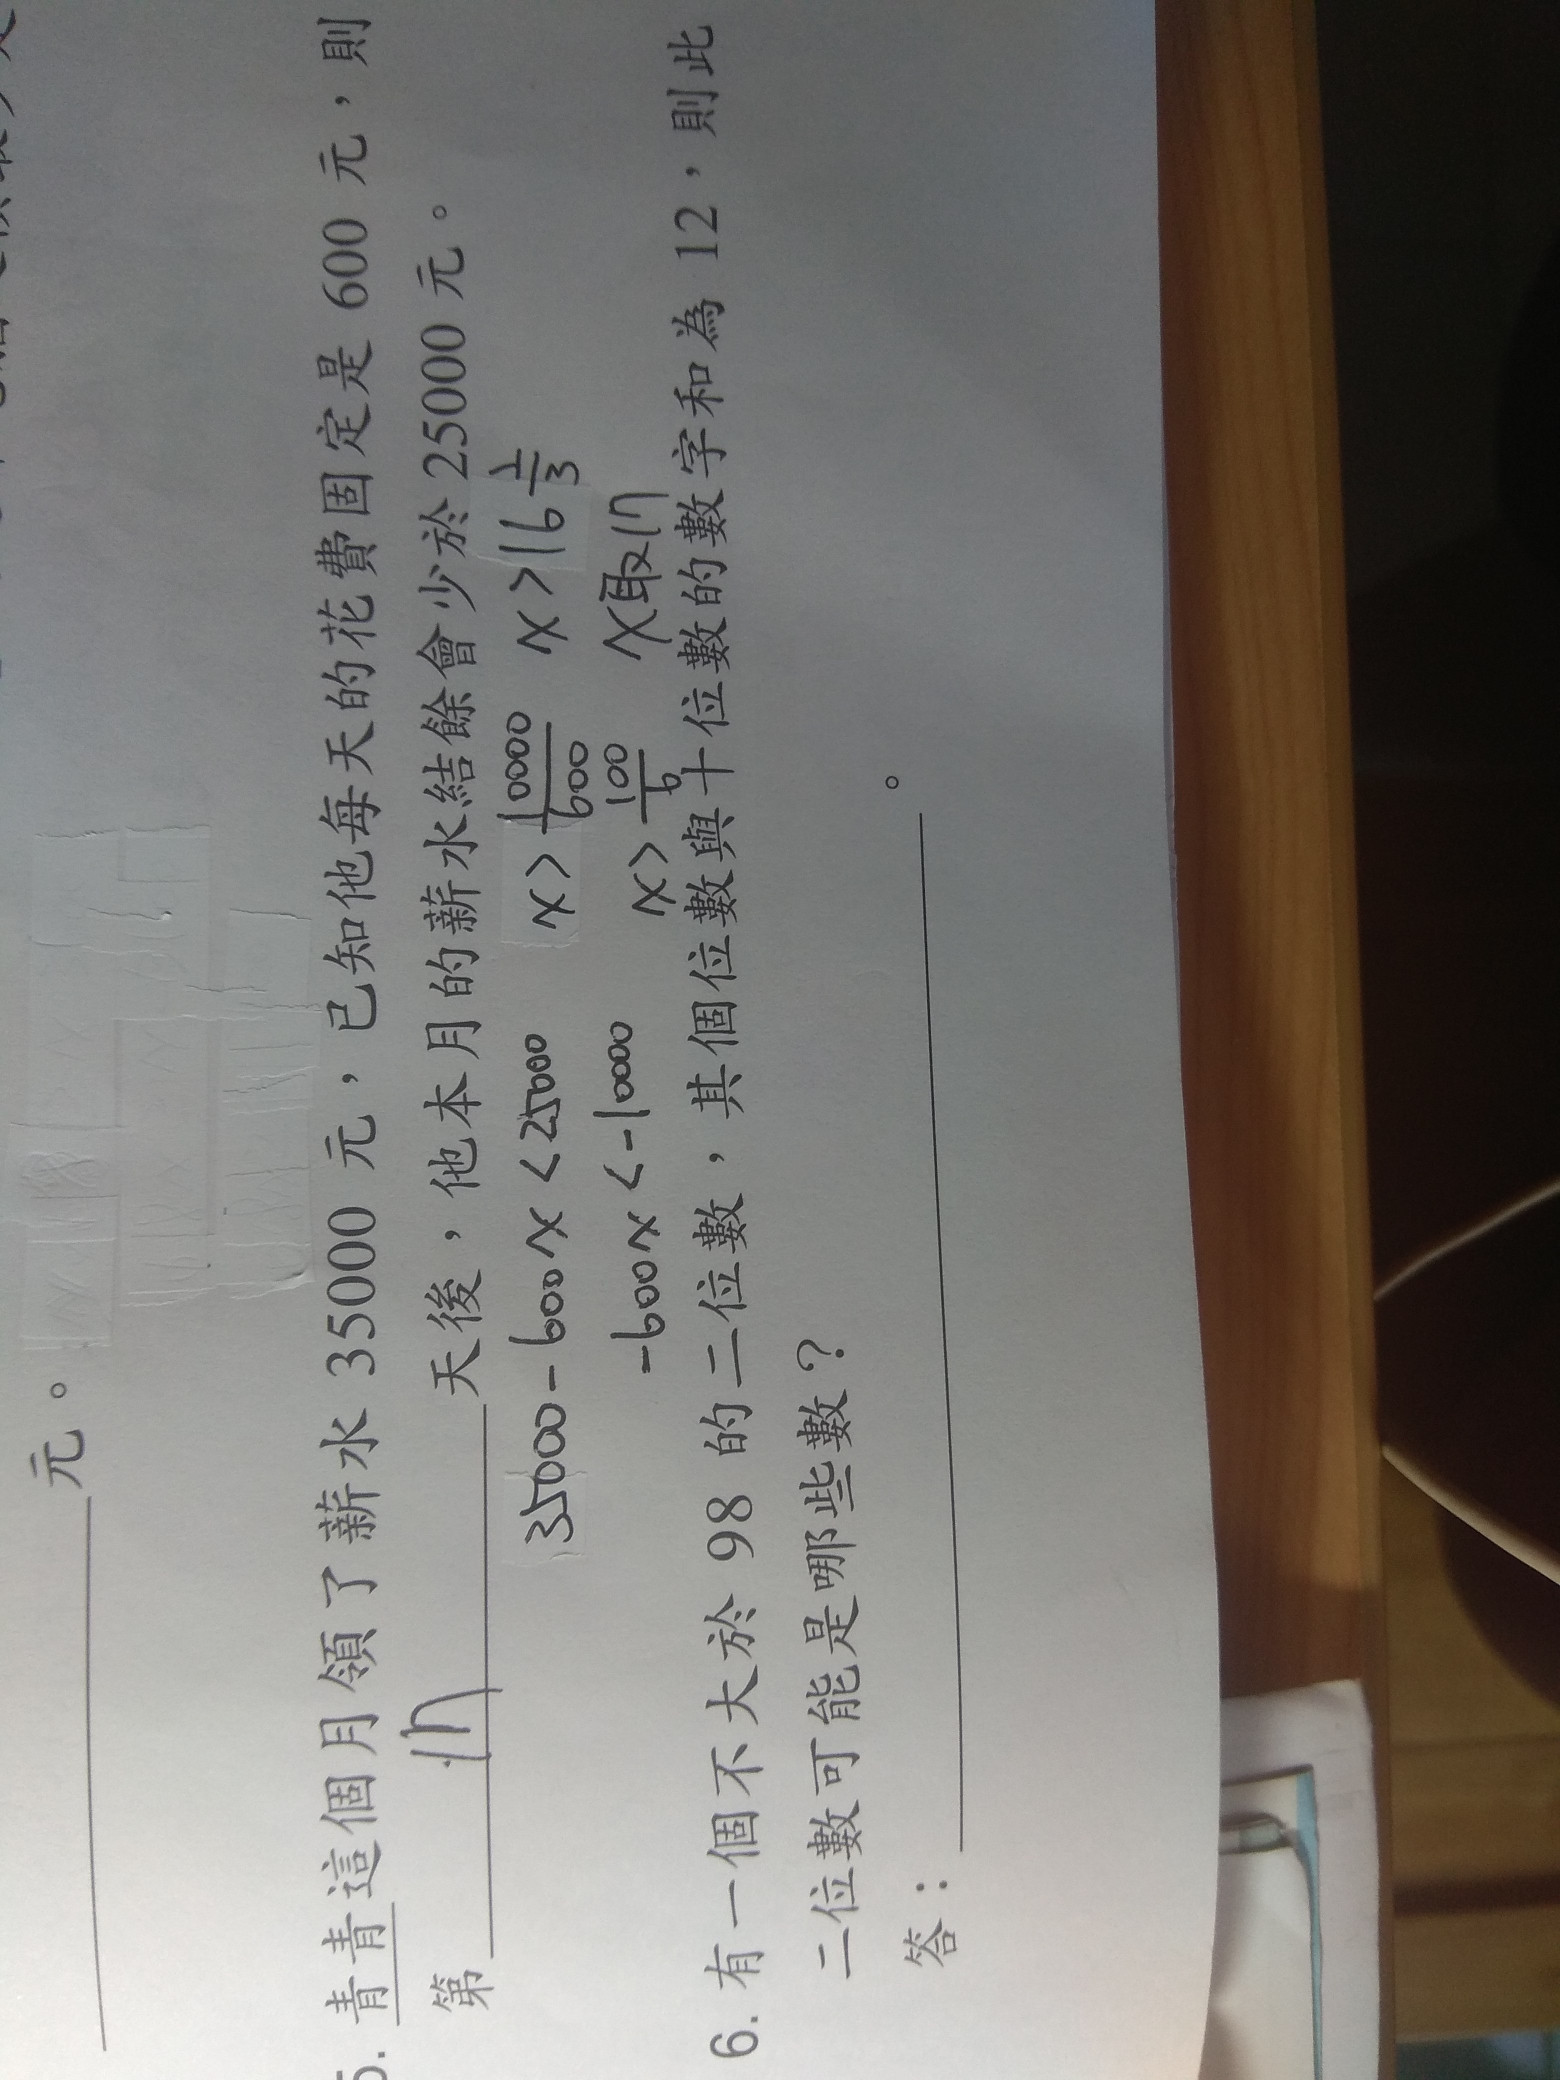 元。
5. 青青這個月領了薪水 35000 元，已知他每天的花費固定是 600 元，則
第 17 天後，他本月的薪水結餘會少於 25000 元。
35000-600x<25000 x>10000/600 x>16
-600x<-10000 x>100/6 x取17
6. 有一個不大於 98 的二位數，其個位數與十位數的數字和為 12，則此
二位數可能是哪些數？
答：。